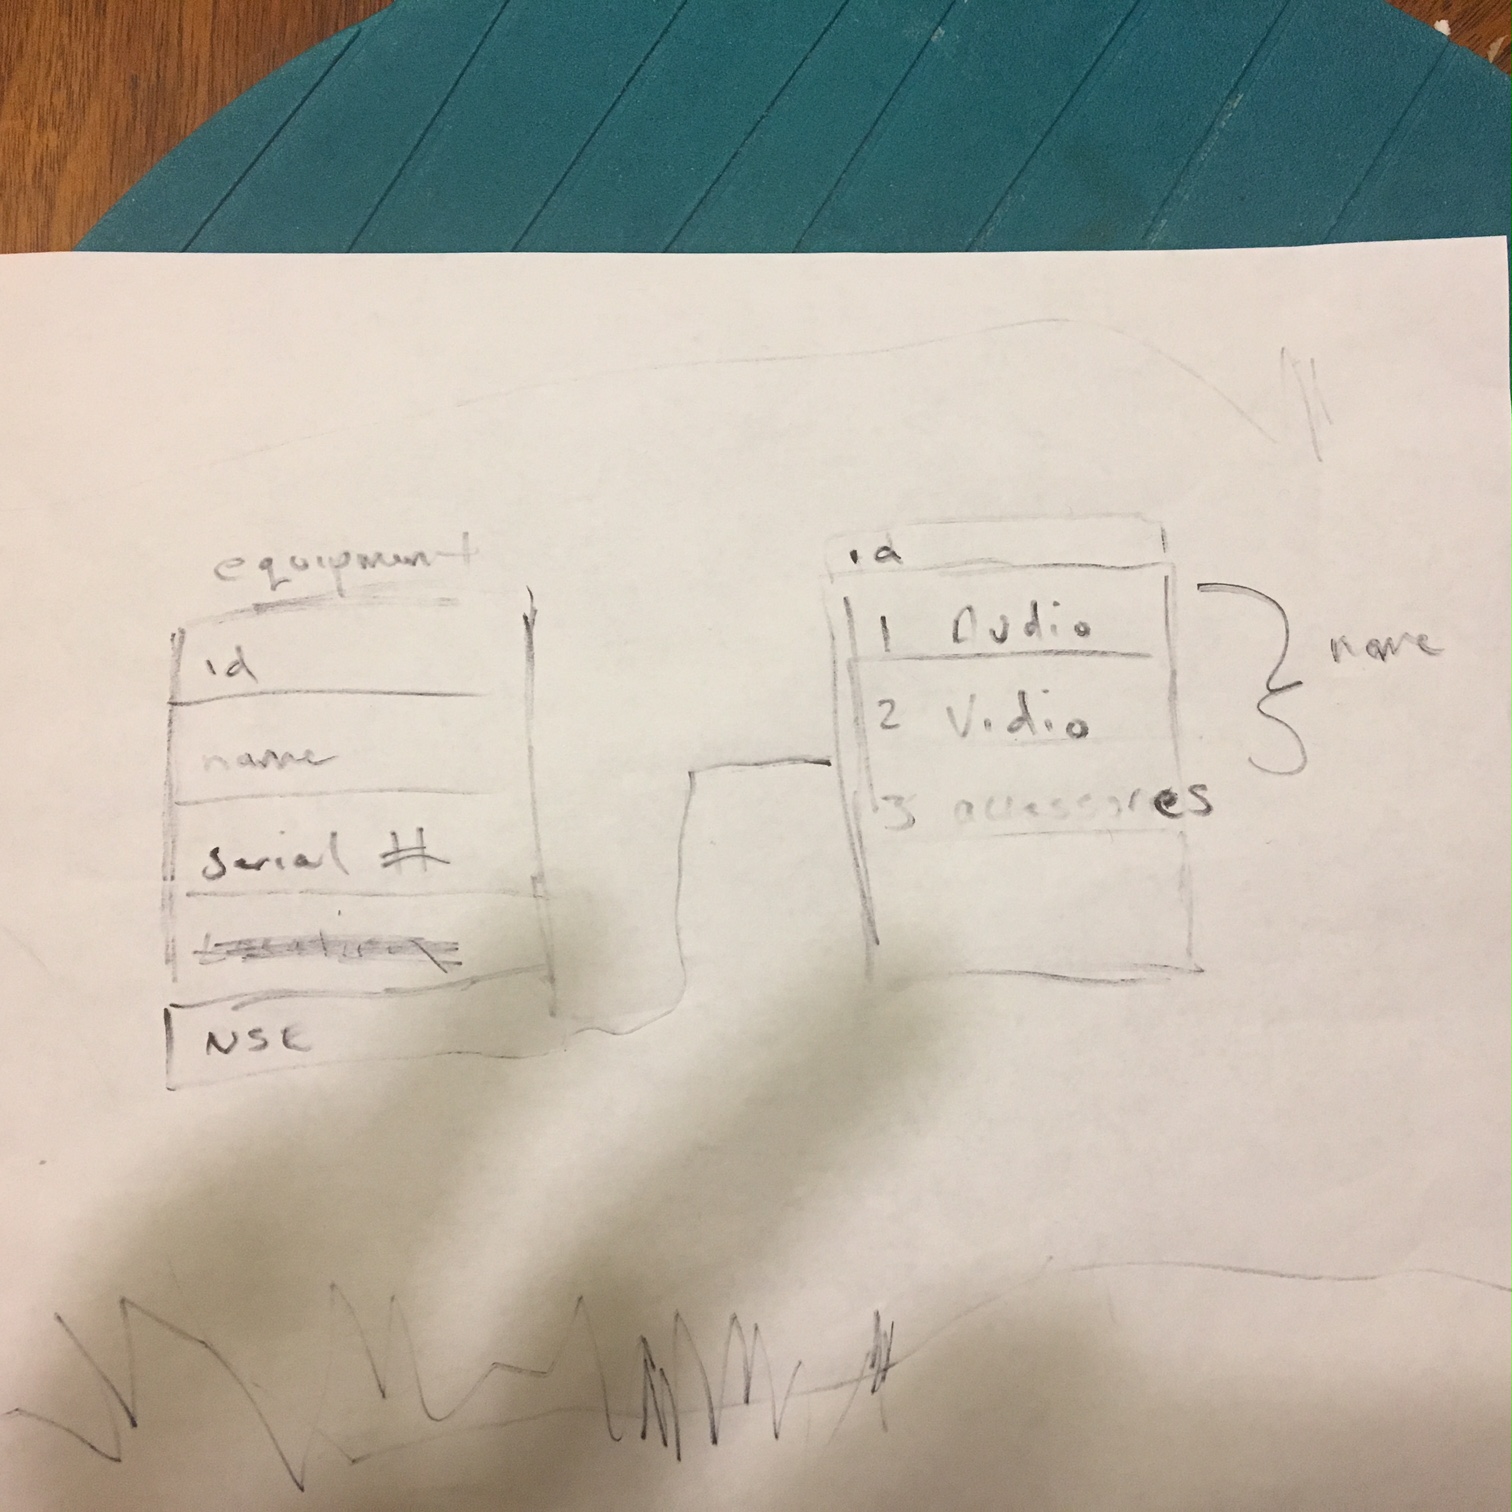 equipment
id
name
Serial #
id
1 Audio
2 Vidio
3 accessories
name